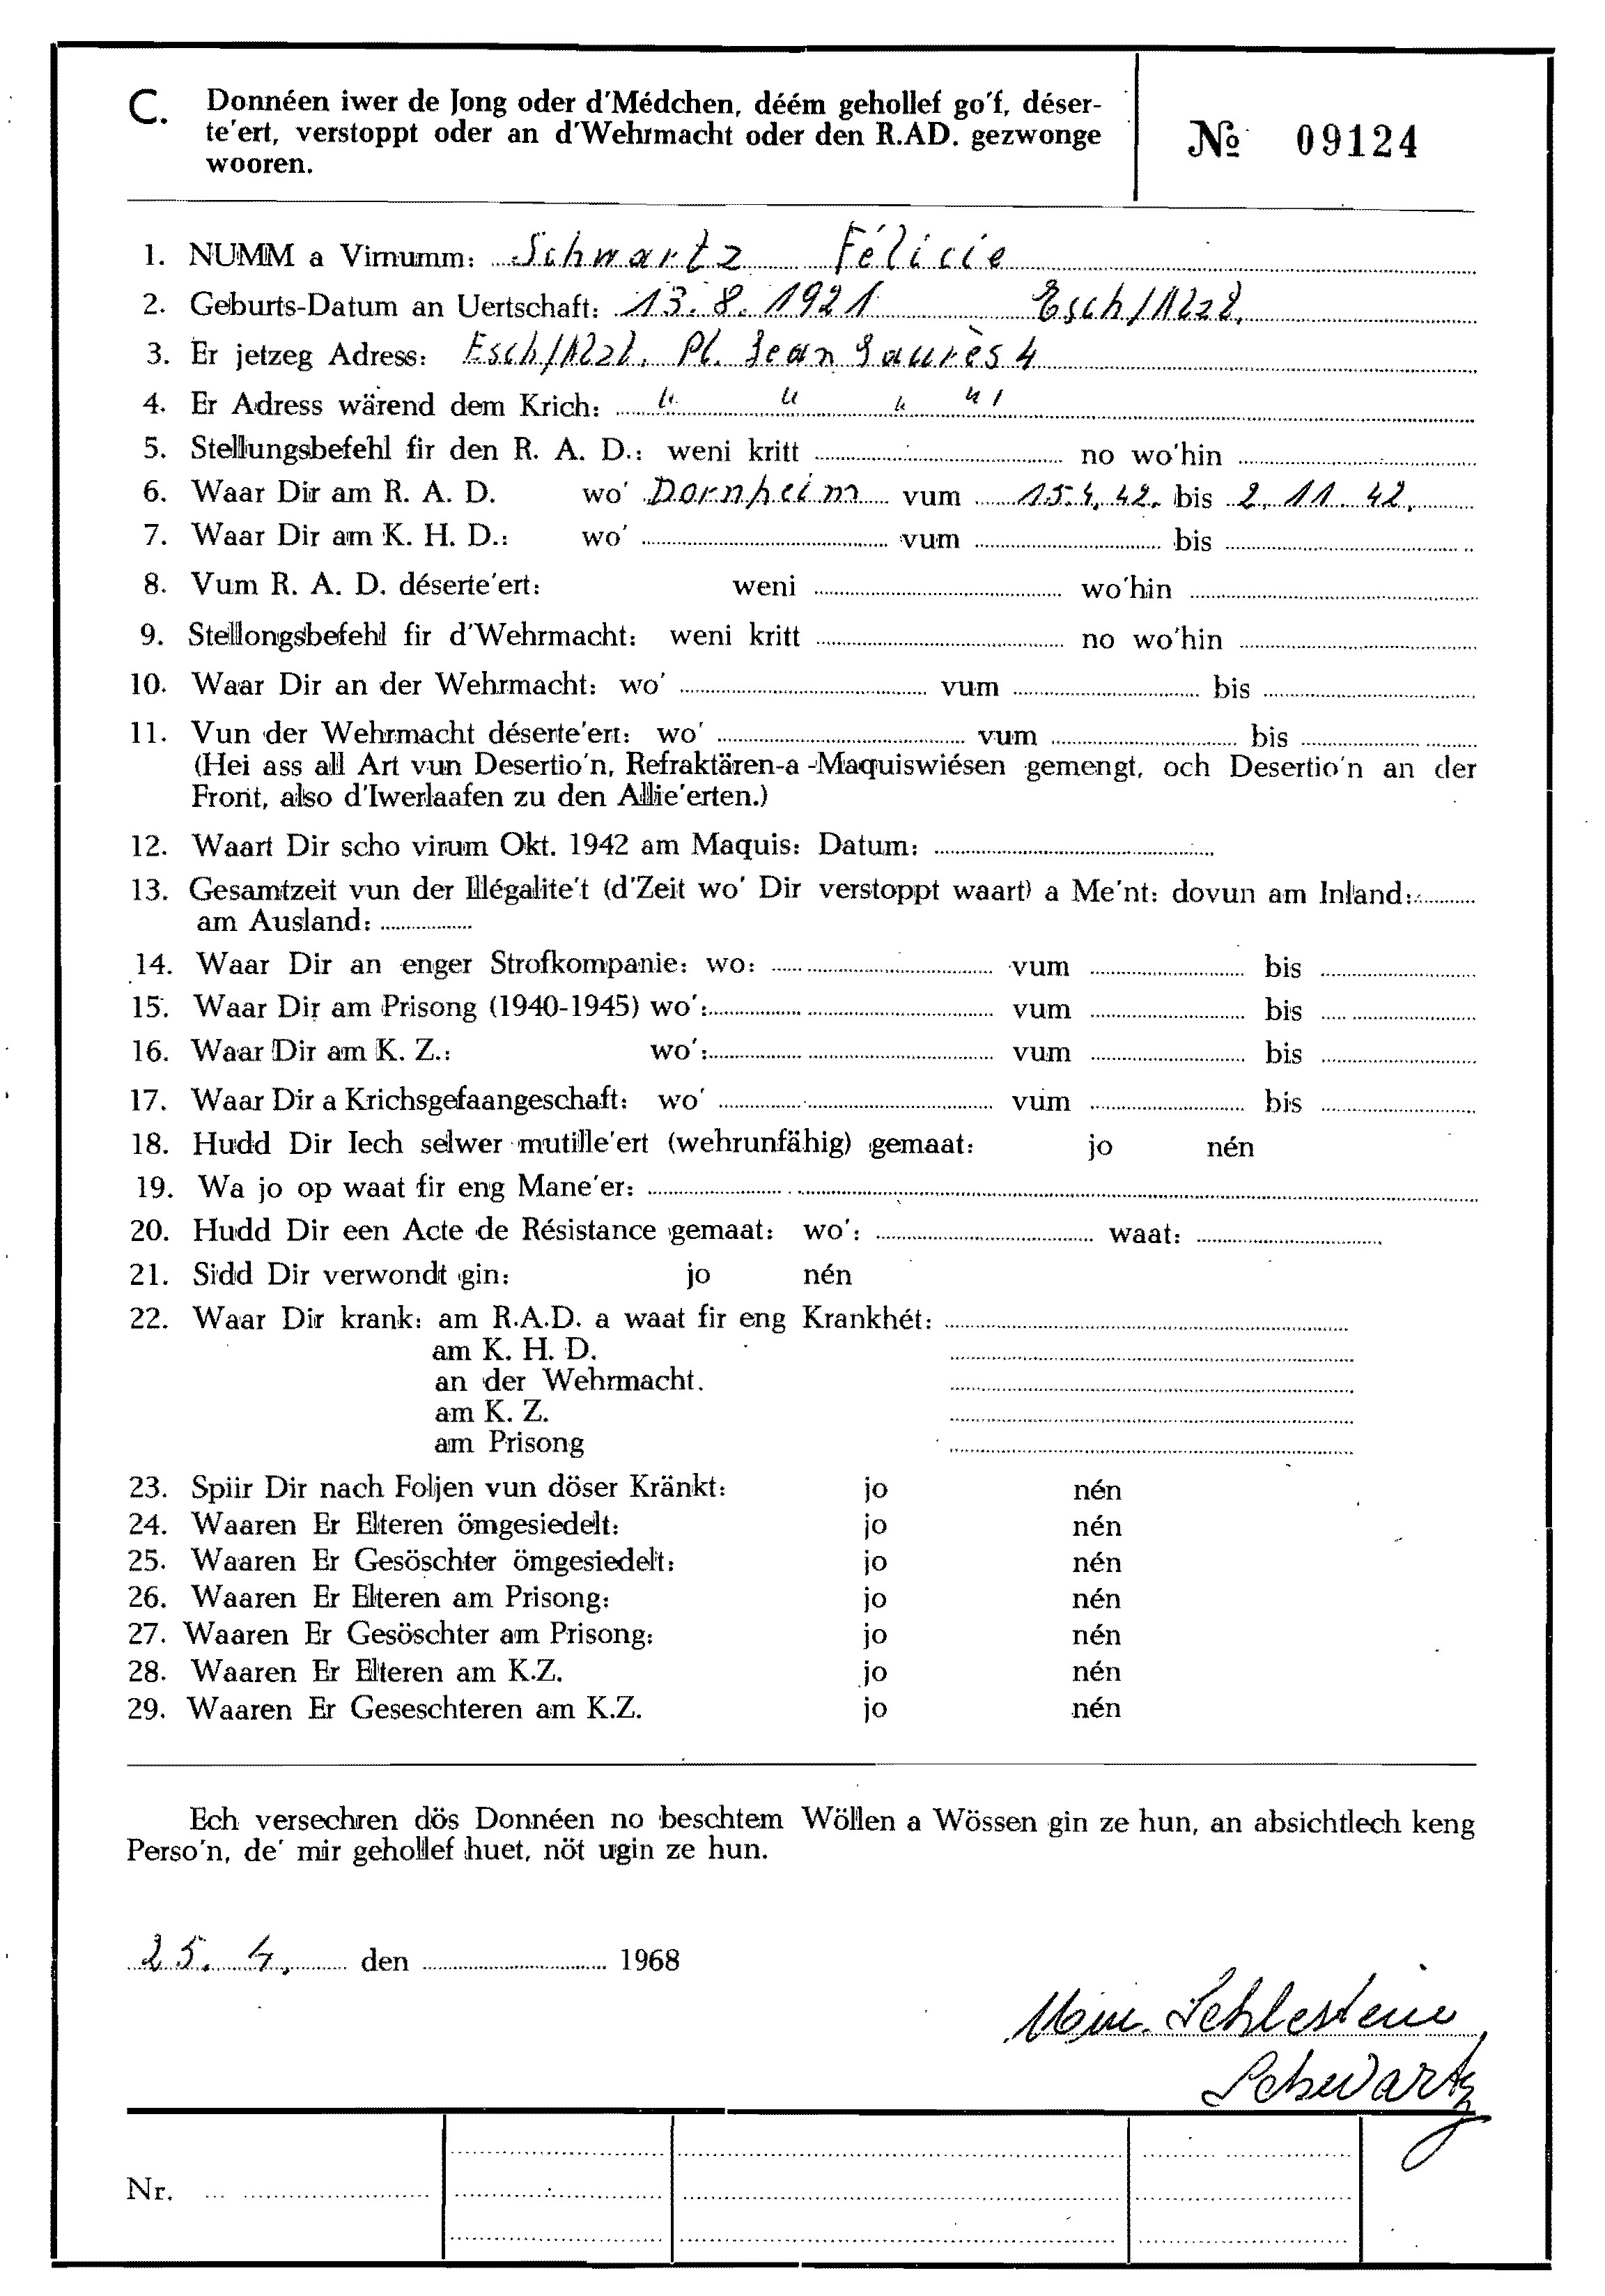 C. Donnéen iwer de Jong oder d'Médchen, déém gehollef go'f, déser-
te'ert, verstoppt oder an d'Wehrmacht oder den R.AD. gezwonge
wooren.
№ 09124
1. NUMM a Virnumm: Schwartz Félicie
2. Geburts-Datum an Uertschaft: 13.8.1921 Esch/Alzl.
3. Er jetzeg Adress: Esch/Alzl. Pl. Jean Jaurès 4
4. Er Adress wärend dem Krich: " " " "
5. Stellungsbefehl fir den R. A. D.: weni kritt no wo'hin
6. Waar Dir am R. A. D. wo' Dornheim vum 15.4.42. bis 2.11.42.
7. Waar Dir am K. H. D.: wo' vum bis
8. Vum R. A. D. déserte'ert: weni wo'hin
9. Stellongsbefehl fir d'Wehrmacht: weni kritt no wo'hin
10. Waar Dir an der Wehrmacht: wo' vum bis
11. Vun der Wehrmacht déserte'ert: wo' vum bis
(Hei ass all Art vun Desertio'n, Refraktären-a -Maquiswiésen gemengt, och Desertio'n an der
Front, also d'Iwerlaafen zu den Allie'erten.)
12. Waart Dir scho virum Okt. 1942 am Maquis: Datum:
13. Gesamtzeit vun der Illégalite't (d'Zeit wo' Dir verstoppt waart) a Me'nt: dovun am Inland:
am Ausland:
14. Waar Dir an enger Strofkompanie: wo: vum bis
15. Waar Dir am Prisong (1940-1945) wo': vum bis
16. Waar Dir am K. Z.: wo': vum bis
17. Waar Dir a Krichsgefaangeschaft: wo' vum bis
18. Hudd Dir Iech selwer mutille'ert (wehrunfähig) gemaat: jo nén
19. Wa jo op waat fir eng Mane'er:
20. Hudd Dir een Acte de Résistance gemaat: wo': waat:
21. Sidd Dir verwondt gin: jo nén
22. Waar Dir krank: am R.A.D. a waat fir eng Krankhét:
am K. H. D.
an der Wehrmacht.
am K. Z.
am Prisong
23. Spiir Dir nach Foljen vun döser Kränkt: jo nén
24. Waaren Er Elteren ömgesiedelt: jo nén
25. Waaren Er Gesöschter ömgesiedelt: jo nén
26. Waaren Er Elteren am Prisong: jo nén
27. Waaren Er Gesöschter am Prisong: jo nén
28. Waaren Er Elteren am K.Z. jo nén
29. Waaren Er Geseschteren am K.Z. jo nén
Ech versechren dös Donnéen no beschtem Wöllen a Wössen gin ze hun, an absichtlech keng
Perso'n, de' mir gehollef huet, nöt ugin ze hun.
25. 4. den 1968
Schwartz
Nr.